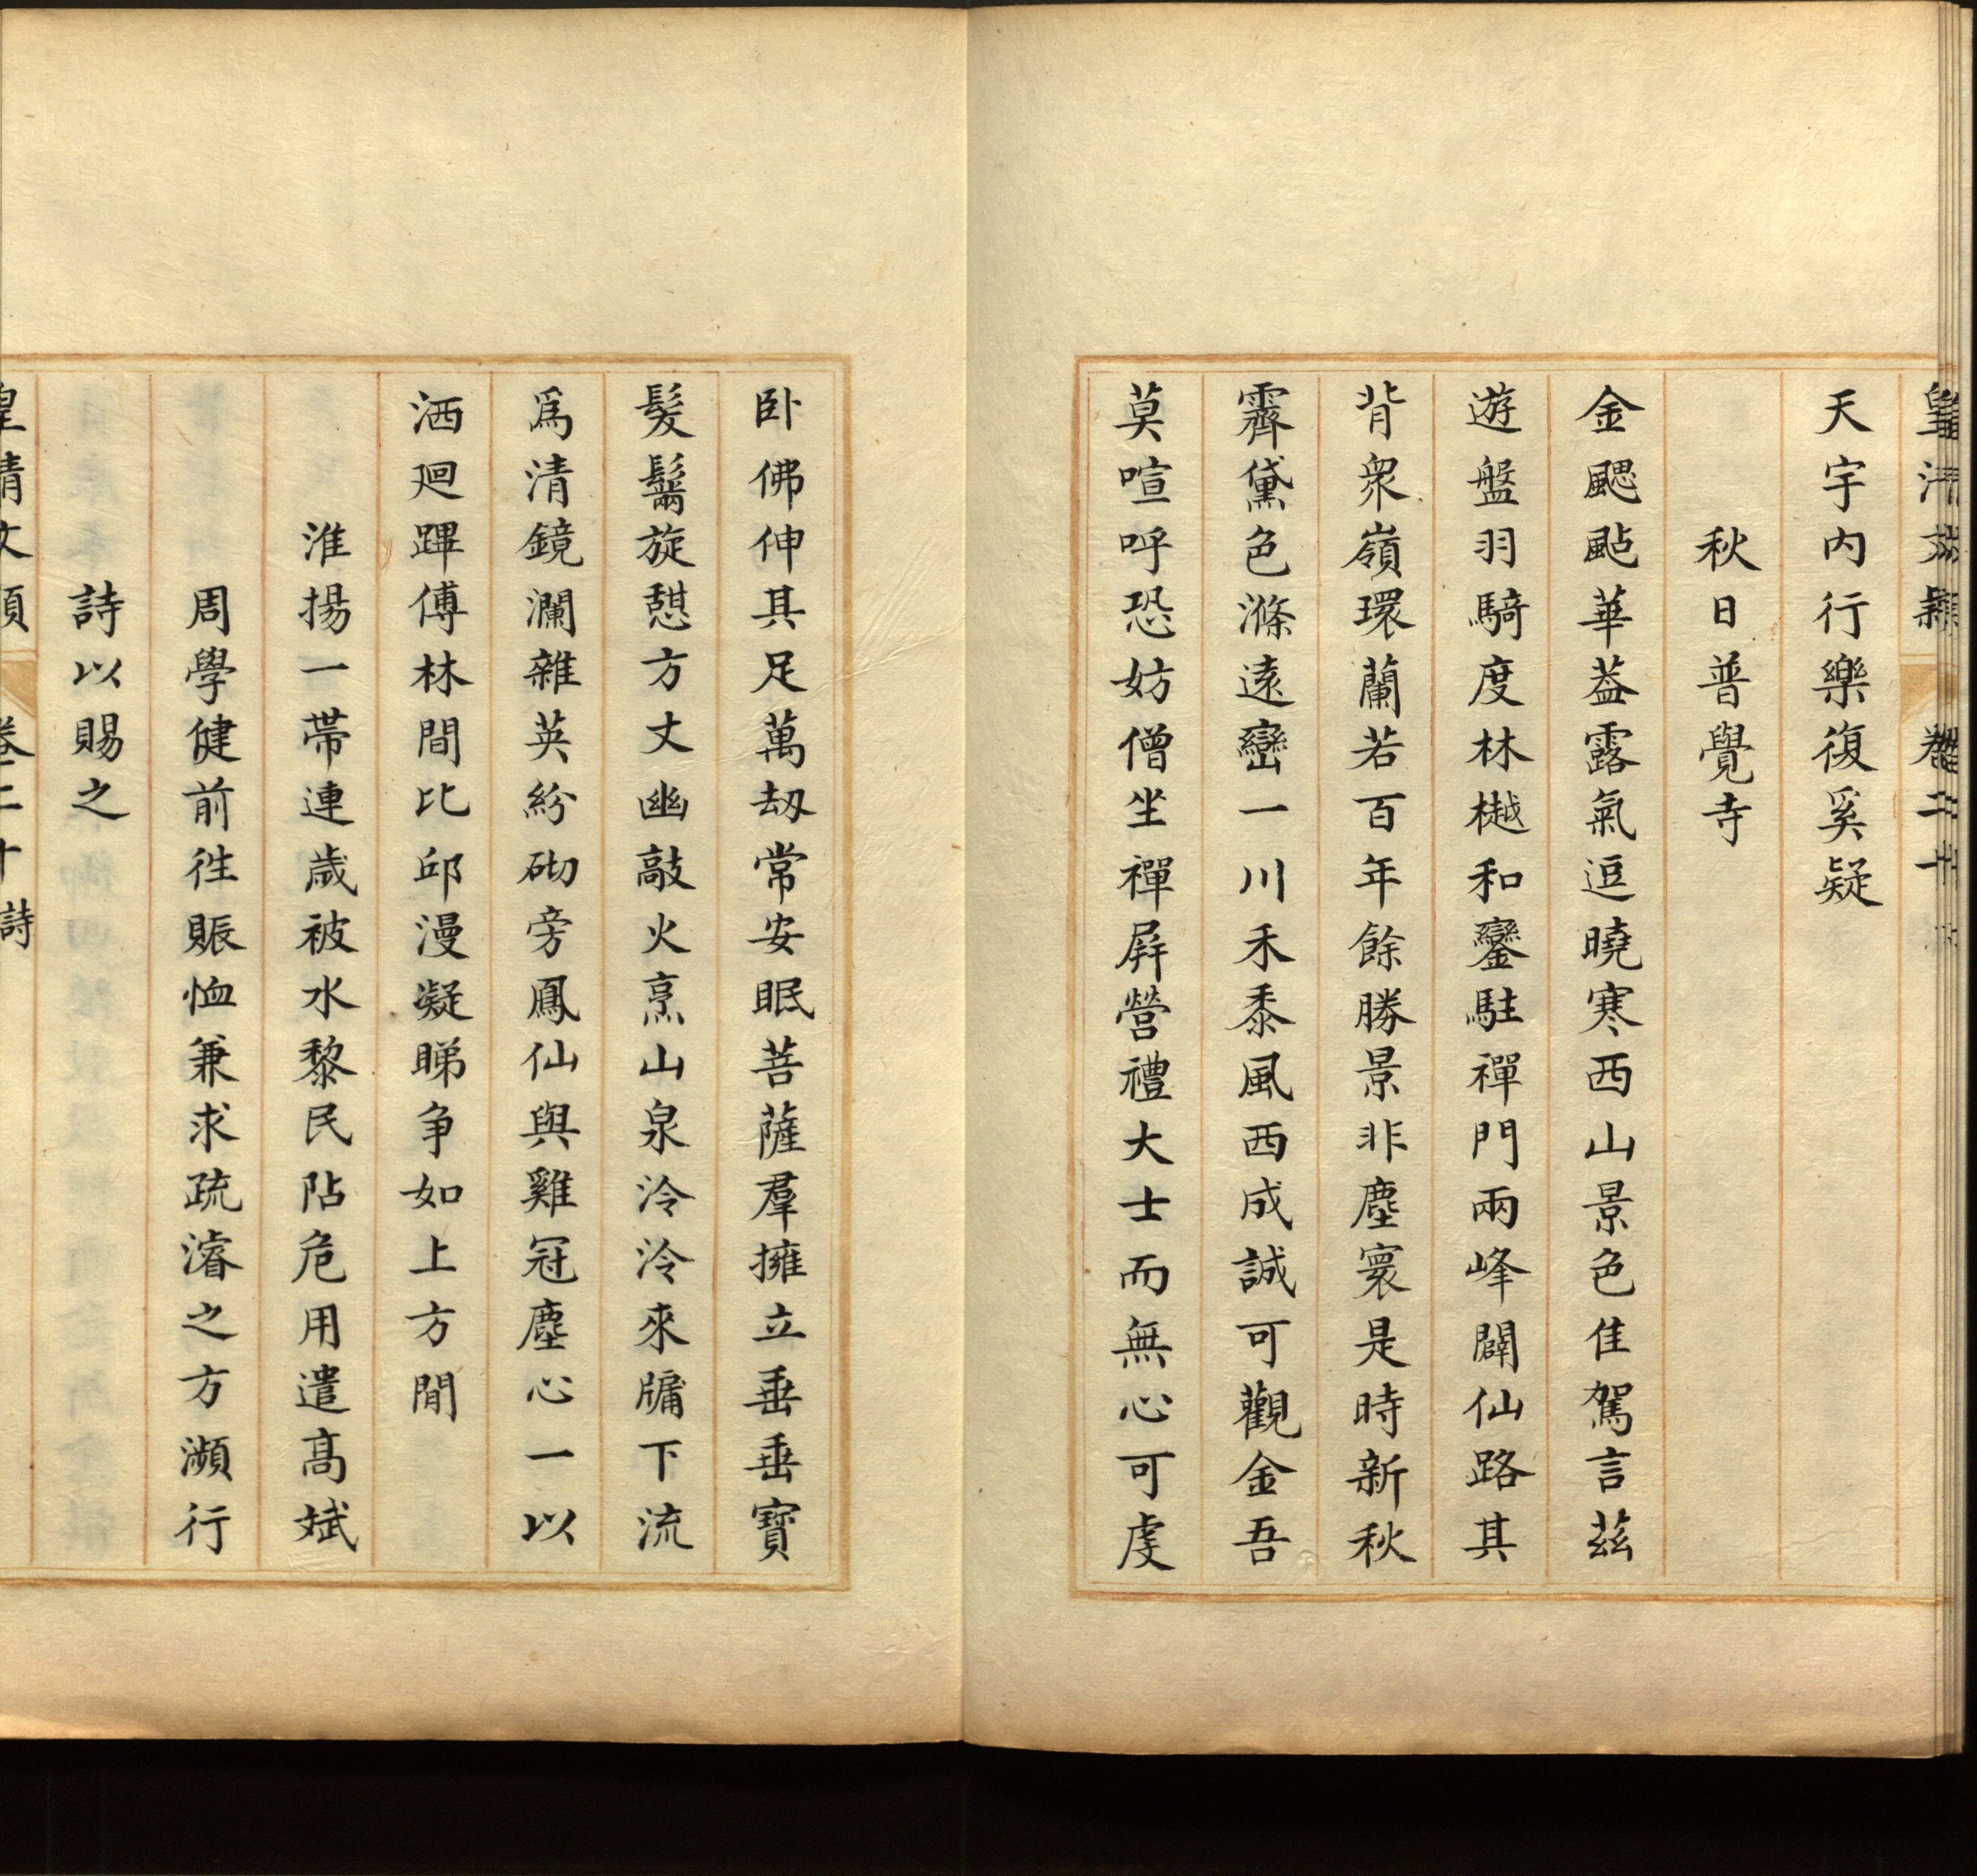 皇清文穎 卷二十
天宇内行樂復奚疑
秋日普覺寺
金颸颭華葢露氣逗曉寒西山景色佳駕言茲
遊盤羽騎度林樾和鑾駐禪門兩峰闢仙路其
背衆嶺環蘭若百年餘勝景非塵寰是時新秋
霽黛色滌遠巒一川禾黍風西成誠可觀金吾
莫喧呼恐妨僧坐禪屏營禮大士而無心可虔
卧佛伸其足萬刼常安眠菩薩羣擁立垂垂寶
髮鬅旋憇方丈幽敲火烹山泉泠泠來牖下流
爲清鏡瀾雜英紛砌旁鳳仙與雞冠塵心一以
洒廻蹕傅林間比邱漫凝睇争如上方閒
淮揚一帶連歲被水黎民阽危用遣髙斌
周學健前徃賑恤兼求疏濬之方瀕行
詩以賜之
皇清文穎 卷二十 詩